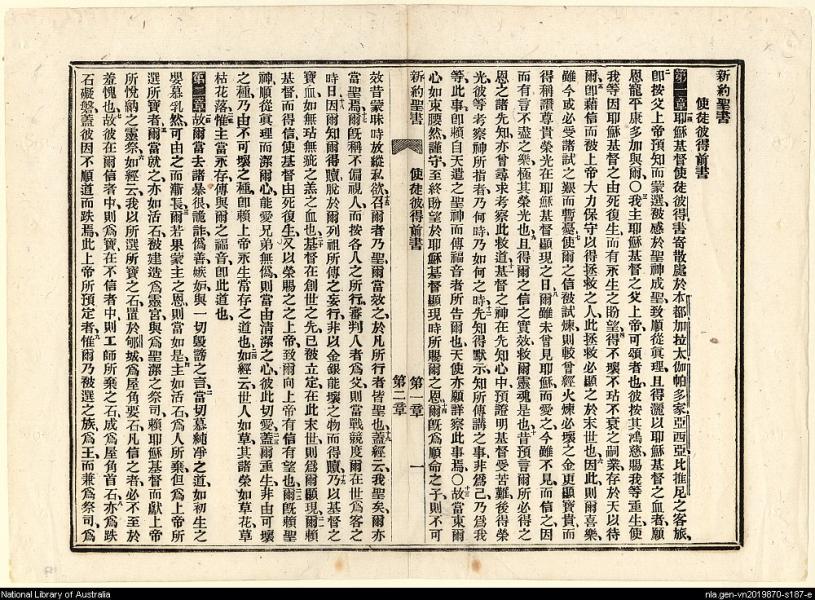 新約聖書
使徒彼得前書
第一章耶穌基督使徒彼得書寄散處於本都加拉太伽帕多家亞西亞比推尼之客旅
卽按父上帝預知而蒙選被感於聖神成聖致順從眞理且得灑以耶穌基督之血者願
恩寵平康多加與爾○我主耶穌基督之父上帝可頌者也彼按其鴻慈賜我等重生使
我等因耶穌基督之由死復生而有永生之盼望得不壞不玷不衰之嗣業存於天以待
爾卽藉信而被上帝大力保守以得拯救之人此拯救必顯之於末世也因此則爾喜樂
雖今或必受諸試之艱而暫憂使爾之信被試煉則較曾經火煉必壞之金更顯寶貴而
得稱讚尊貴榮光在耶穌基督顯現之日爾雖未曾見耶穌而愛之今雖不見而信之因
而有言不盡之樂極其榮光也且得爾之信之實效救爾靈魂是也昔預言爾所必得之
恩之諸先知亦曾尋求考察此救道基督之神在先知心中預證明基督受苦難後得榮
光彼等考察神所指者乃何時乃如何之時先知得默示知所傳講之事非爲己乃爲我
等此事卽賴自天遣之聖神而傳福音者所告爾也天使亦願詳察此事焉○故當束爾
心如束腰然謹守至終盼望於耶穌基督顯現時所賜爾之恩爾旣爲順命之子則不可
新約聖書
使徒彼得前書
第一章
第二章
一
效昔蒙昧時放縱私欲召爾者乃聖爾當效之於凡所行者皆聖也蓋經云我聖矣爾亦
當聖焉爾旣稱不偏視人而按各人之所行審判人者爲父則當戰競度爾在世爲客之
時日因爾知爾得贖脫於爾列祖所傳之妄行非以金銀能壞之物而得贖乃以基督之
寶血如無玷無疵之羔之血也基督在創世之先已被立定在此末世則爲爾顯現爾賴
基督而得信使基督由死復生又以榮賜之之上帝致爾向上帝有信有望也爾旣賴聖
神順從眞理而潔爾心能愛兄弟無僞則當由清潔之心彼此切愛蓋爾重生非由可壞
之種乃由不可壞之種卽賴上帝永生當存之道也如經云世人如草其諸榮如草花草
枯花落惟主當永存傳與爾之福音卽此道也
第二章故爾當去諸暴很詭詐僞善嫉妬與一切毀謗之言當切慕純凈之道如初生之
嬰慕乳然可由之而漸長爾若果蒙主之恩則當如是主如活石爲人所棄但爲上帝所
選所寶者爾當就之亦如活石被建造爲靈宮與爲聖潔之祭司賴耶穌基督而獻上帝
所悅納之靈祭如經云我以所選所寶之石置於郇城爲屋角要石凡信之者必不至於
羞愧也故彼在爾信者中則爲寶在不信者中則工師所棄之石成爲屋角首石亦爲跌
石礙磐蓋彼因不順道而跌焉此上帝所預定者惟爾乃被選之族爲王而兼爲祭司爲
National Library of Australia
nla.gen-vn2019870-s187-e